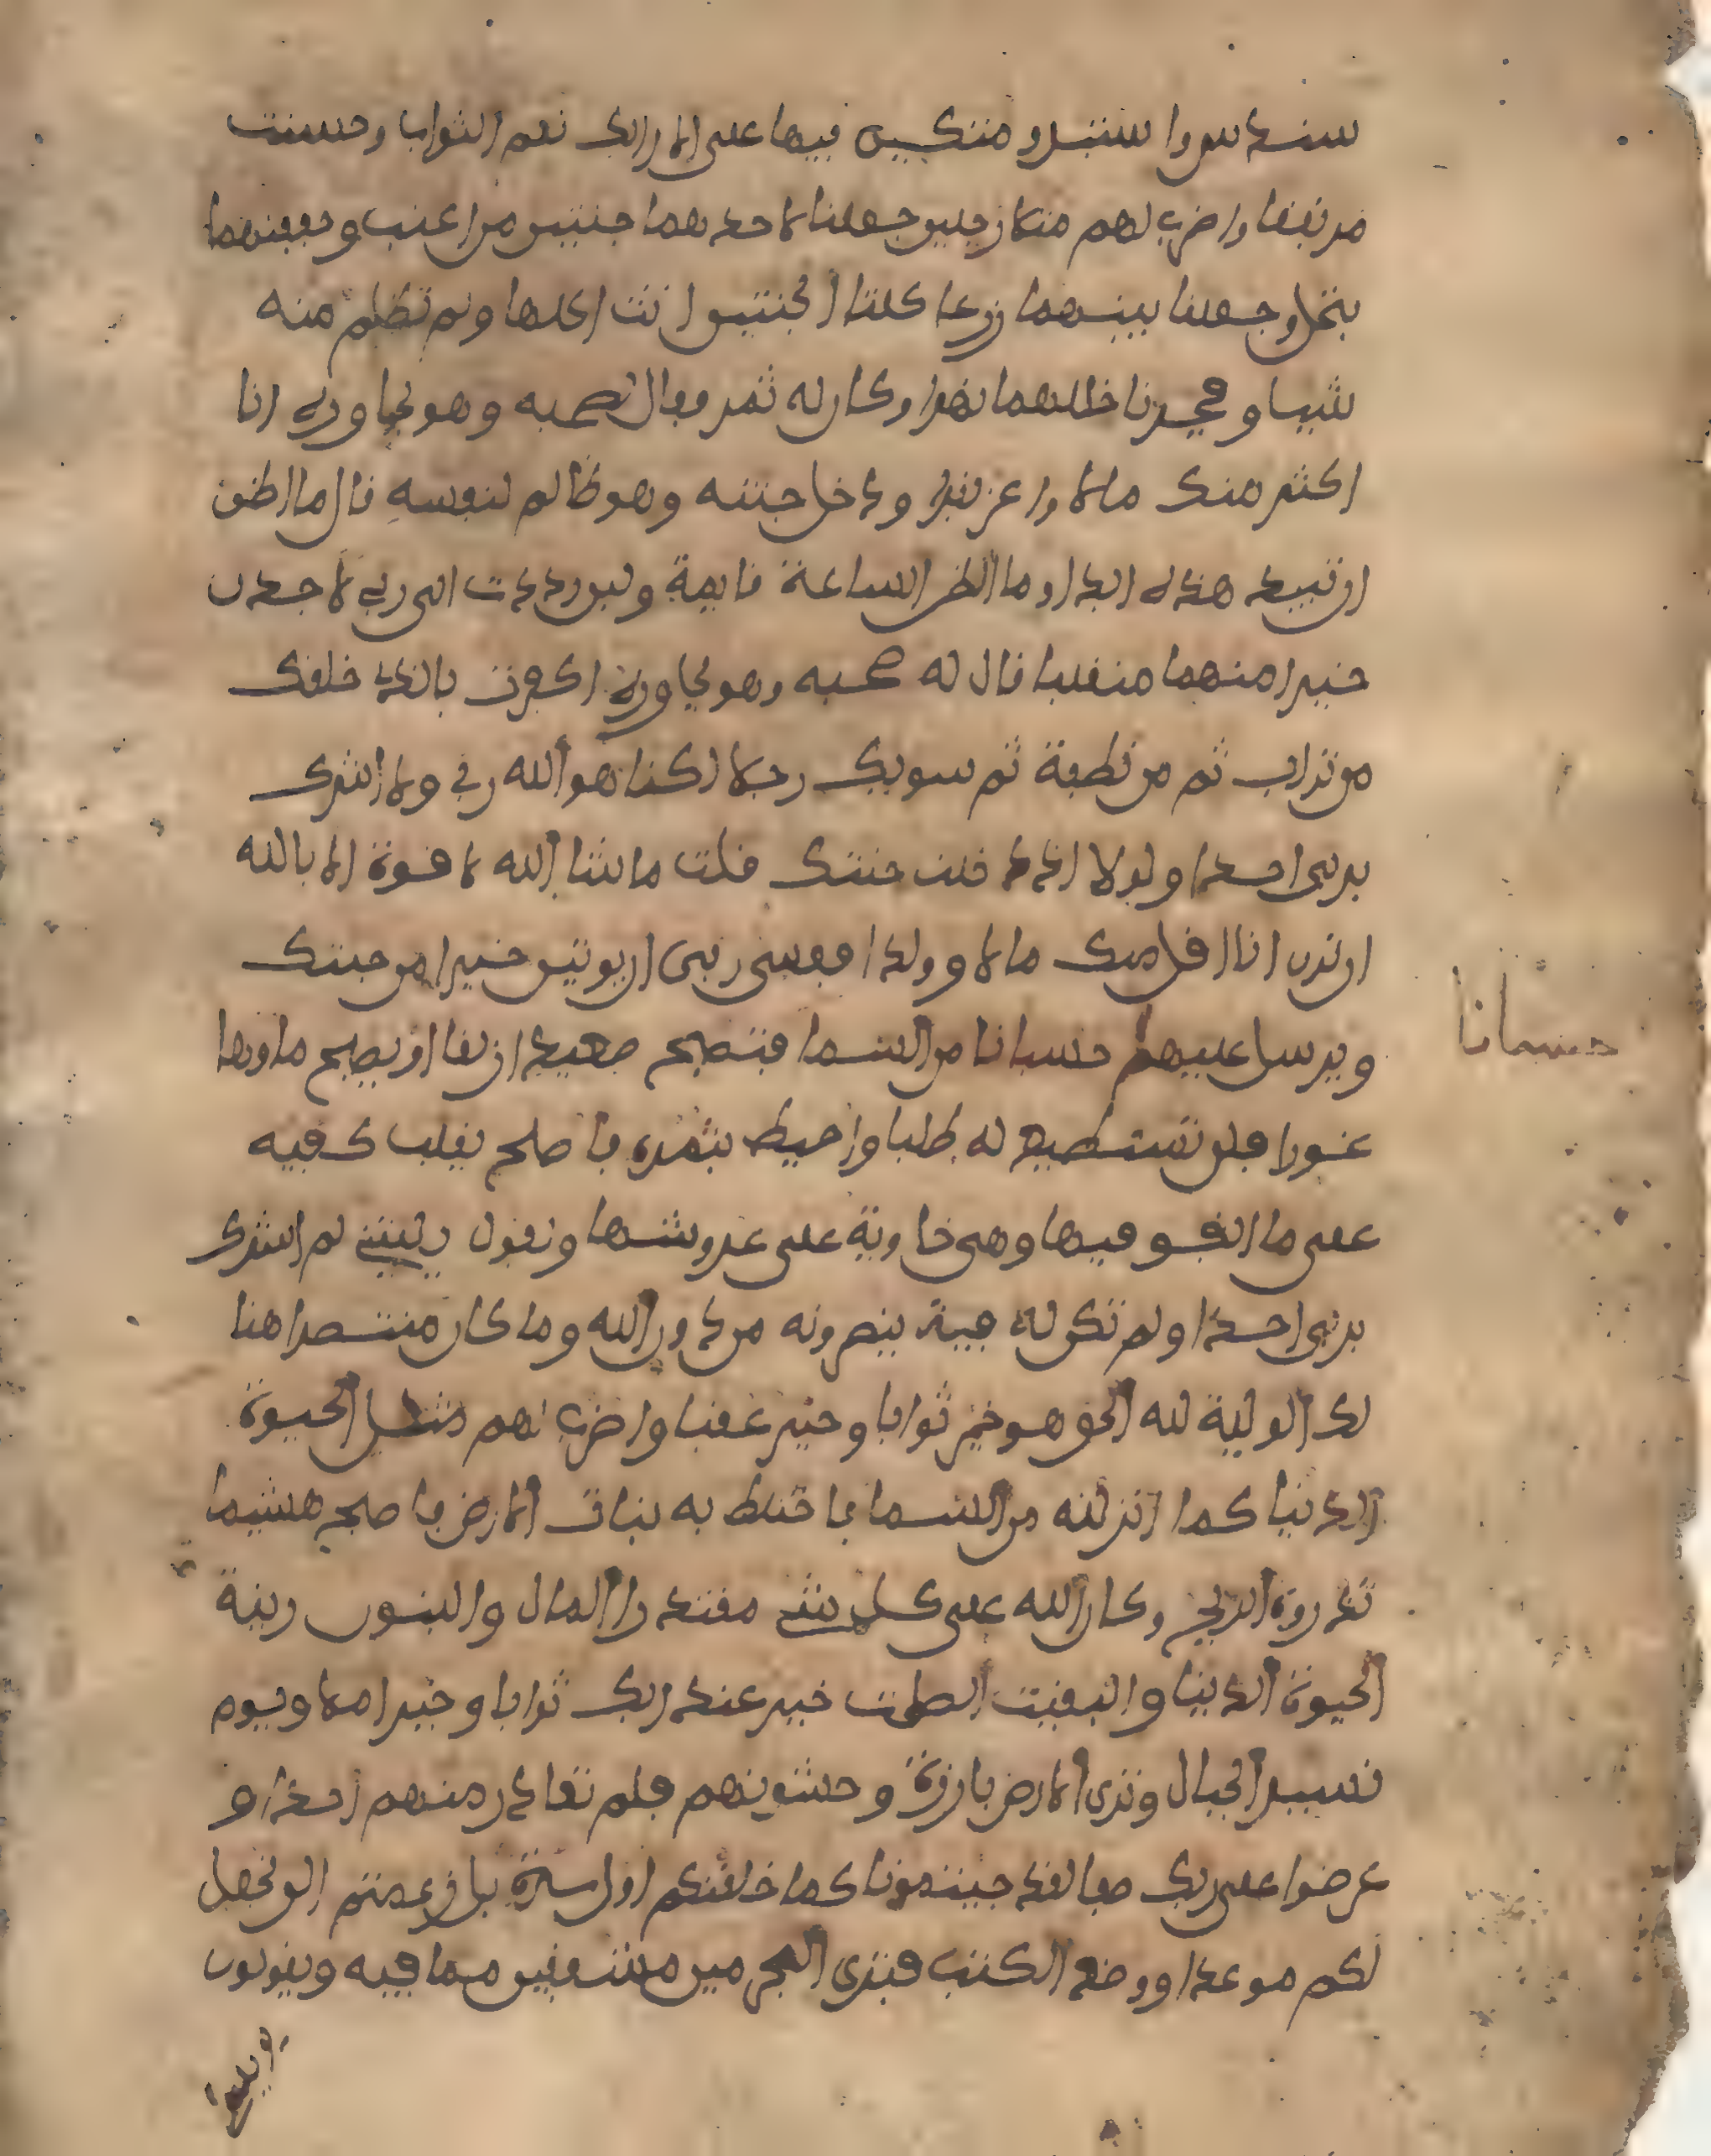 سندس واستبرو متكيين فيها على الارايك نعم الثواب وحسنت
مرتفقا واضرب لهم مثلا رجلين جعلنا لاحدهما جنتين من اعنب وحففنهما
بنخل وجعلنا بينهما زرعا كلتا الجنتين اتت اكلها ولم تظلم منه
شيا وفجرنا خللهما نهرا وكان له ثمر فقال لصحبه وهو يحاوره انا
اكثر منك مالا واعز نفرا ودخل جنته وهو ظالم لنفسه قال ما اظن
ان تبيد هذه ابدا وما اظن الساعة قايمة ولين رددت الى ربي لاجدن
خيرا منهما منقلبا قال له صحبه وهو يحاوره اكفرت بالذي خلقك
من تراب ثم من نطفة ثم سويك رجلا لكنا هو الله ربي ولا اشرك
بربي احدا ولولا اذ دخلت جنتك قلت ما شا الله لا قوة الا بالله
ان ترن انا اقل منك مالا وولدا فعسى ربي ان يوتين خيرا من جنتك
ويرسل عليها حسبانا من السما فتصبح صعيدا زلقا او يصبح ماوها
حسبانا
غورا فلن تستطيع له طلبا واحيط بثمره فاصبح يقلب كفيه
على ما انفق فيها وهي خاوية على عروشها ويقول يليتني لم اشرك
بربي احدا ولم تكن له فية ينصرونه من دون الله وما كان منتصرا هنا
لك الولية لله الحق هو خير ثوابا وخير عقبا واضرب لهم مثل الحيوة
الدنيا كما انزلنه من السما فاختلط به نبات الارض فاصبح هشيما
تذروه الريح وكان الله على كل شي مقتدرا المال والبنون زينة
الحيوة الدنيا والبقيت الصلحت خير عند ربك ثوابا وخير املا ويوم
نسير الجبال وترى الارض بارزة وحشرنهم فلم نغادر منهم احدا و
عرضوا على ربك صفا لقد جيتمونا كما خلقنكم اول مرة بل زعمتم الن نجعل
لكم موعدا ووضع الكتب فترى المجرمين مشفقين مما فيه ويقولون